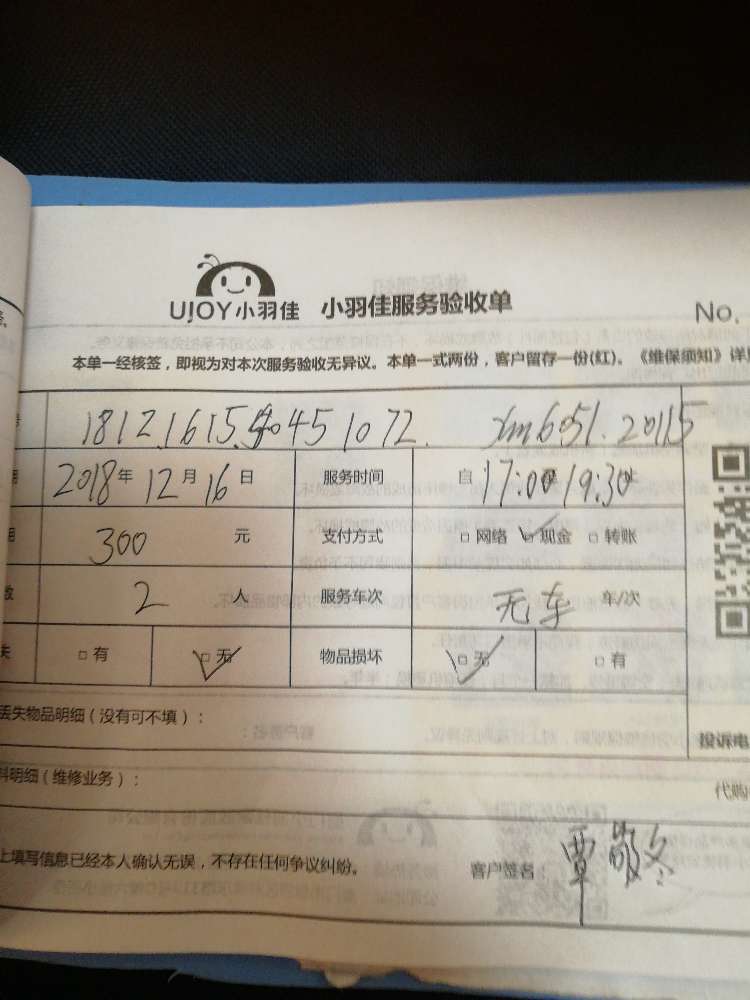 U!OY小羽佳 小羽佳服务验收单
No.
本单一经核签，即视为对本次服务验收无异议。本单一式两份，客户留存一份(红)。《维保须知》详
号 1812.1615.5045 1072. xm6051.20115
2018年12月16日 服务时间 自17:00 19:30
300 元 支付方式 □网络 ☑现金 □转账
数 2 人 服务车次 无车 车/次
失 □有 ☑无 物品损坏 ☑无 □有
丢失物品明细（没有可不填）： 投诉电
料明细（维修业务）： 代购
上填写信息已经本人确认无误，不存在任何争议纠纷。 客户签名： 覃敬冬